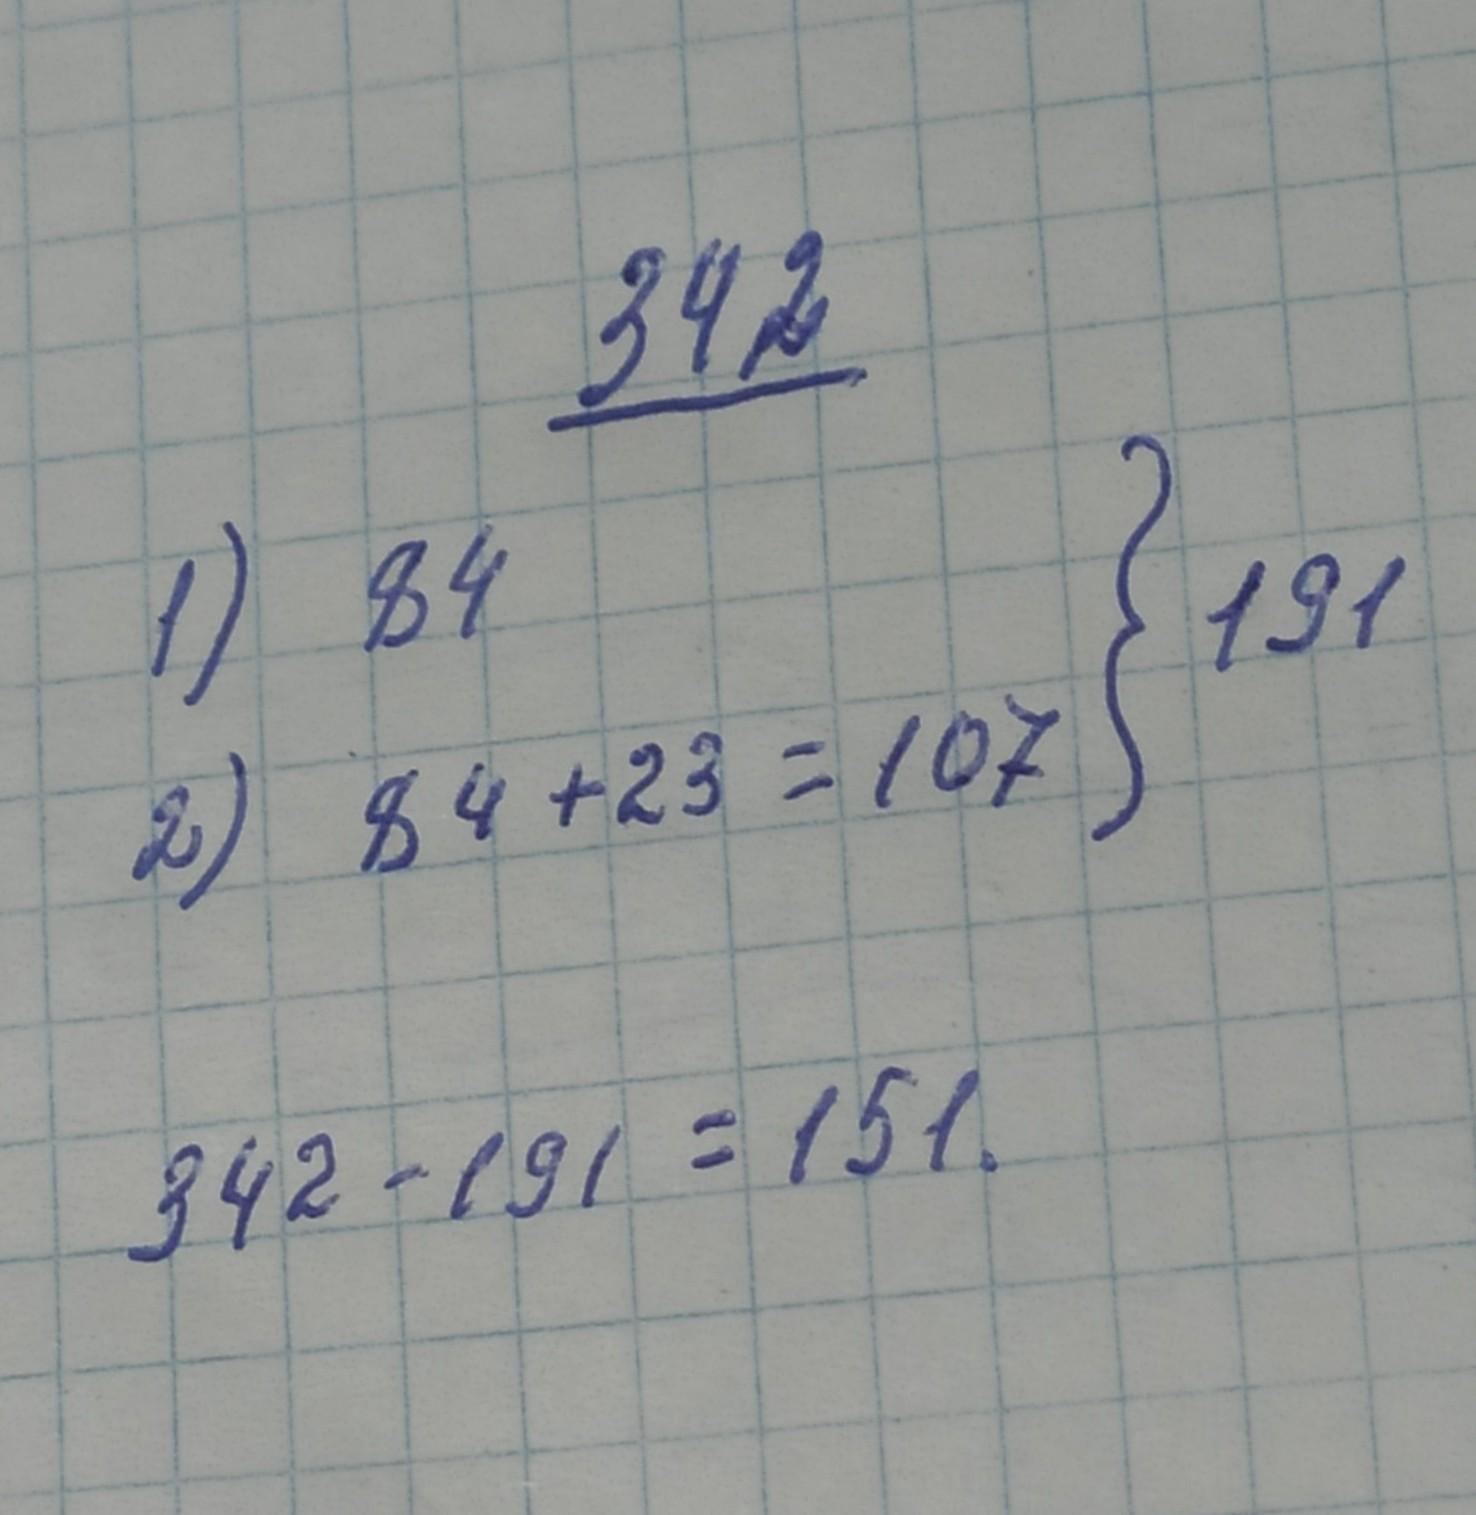 342
1) 84
2) 84 + 23 = 107 } 191
342 - 191 = 151.